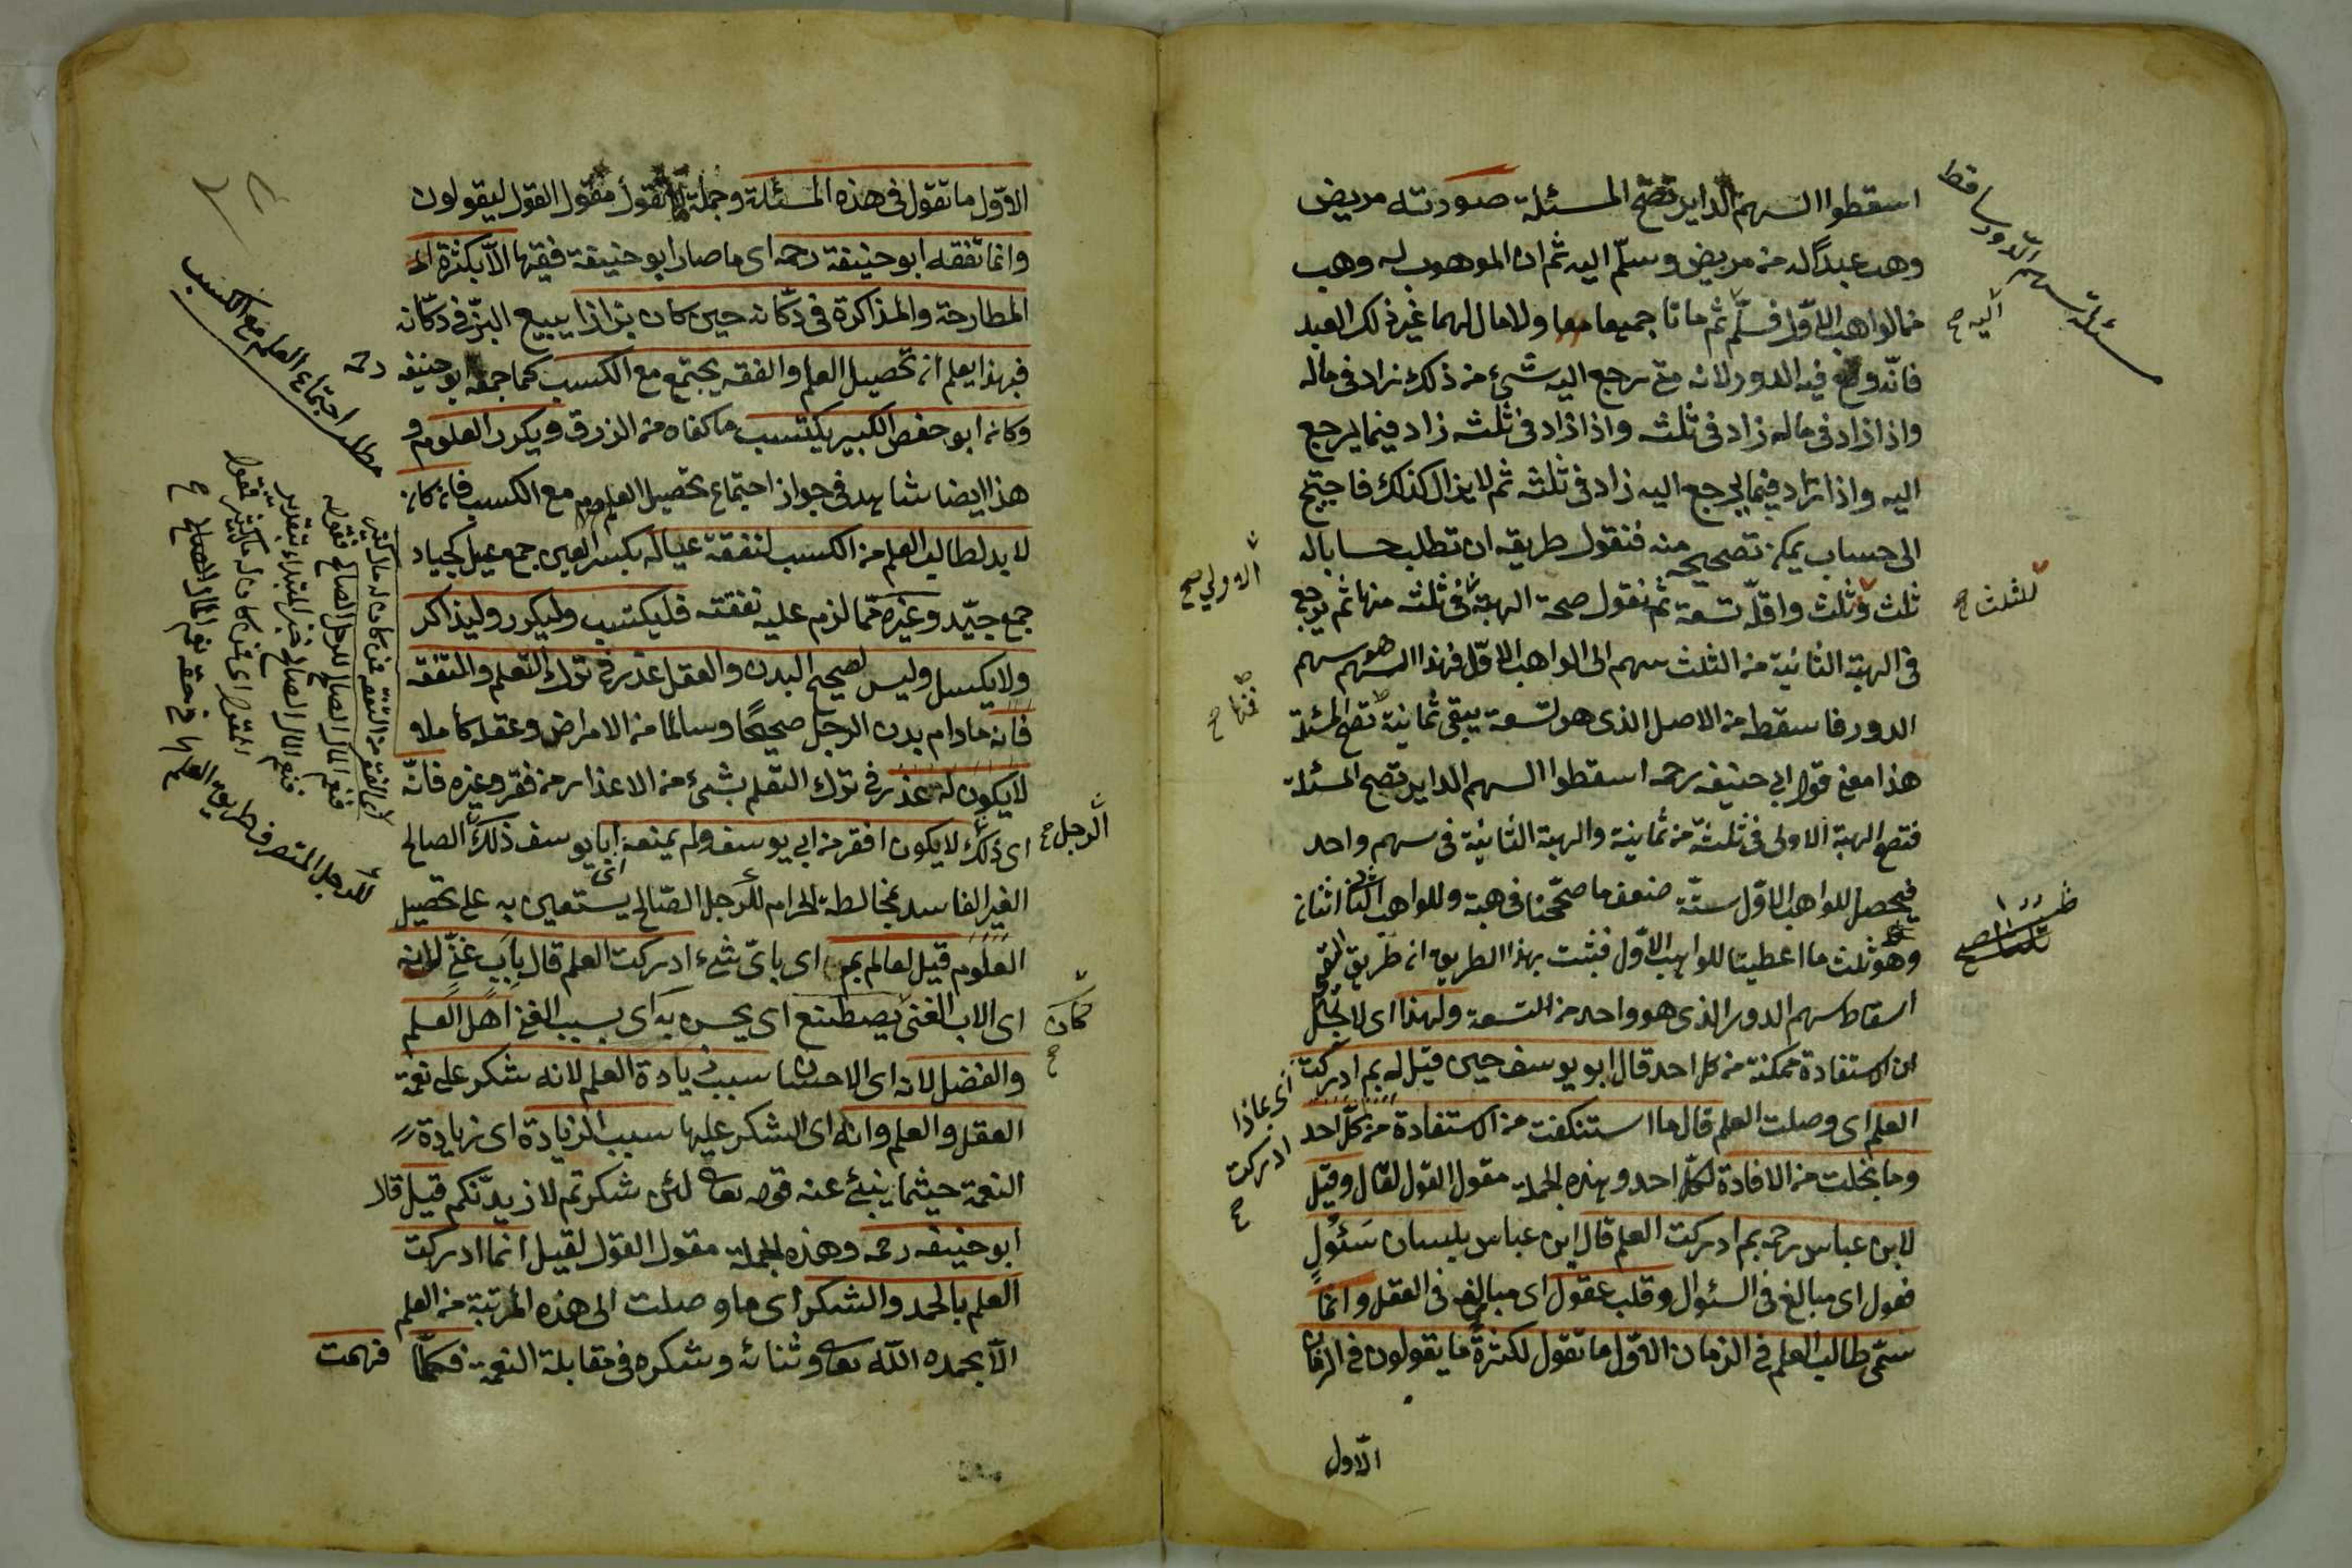 اسقطوا السهم الداير تصح المسئلة صورته مريض
وهب عبدا له من مريض وسلّم اليه ثم ان الموهوب له وهب
من الواهب الاوّل فسلّم ثم ماتا جميعا ولا مال لهما غير ذلك العبد
فانّه وقع فيه الدور لانه متى رجع اليه شئ من ذلك زاد فى ماله
واذا زاد فى ماله زاد فى ثلثه واذا زاد فى ثلثه زاد فيما يرجع
اليه واذا زاد فيما يرجع اليه زاد فى ثلثه ثم لا يزال كذلك فاحتيج
الى حساب يمكن تصحيحه منه فنقول طريقه ان تطلب حسابا له
ثلث وثلث واقلّه تسعة ثم نقول صحة الهبة فى ثلثه منها ثم يرجع
فى الهبة الثانية من الثلث سهم الى الواهب الاوّل فهذا السهم هو سهم
الدور فاسقطه من الاصل الذى هو تسعة يبقى ثمانية تصح المسئلة
هذا معنى قول ابى حنيفه رحمه اسقطوا السهم الداير تصح المسئلة
فتصح الهبة الاولى فى ثلثة من ثمانية والهبة الثانية فى سهم واحد
فيحصل للواهب الاوّل ستّة ضعف ما صحّحنا فى هبة وللواهب الثانى اثنان
وهو ثلث ما اعطينا للواهب الاوّل فثبت بهذا الطريق ان طريق التصحيح
اسقاط سهم الدور الذى هو واحد من التسعة ولهذا اى لاجل
ان الاستفادة ممكنة من كل احد قال ابو يوسف حين قيل له بم ادركت
العلم اى وصلت العلم قال ما استنكفت من الاستفادة من كلّ احد
وما بخلت من الافادة لكلّ احد وهذه الجملة مقول القول لقال وقيل
لابن عباس رحمه بم ادركت العلم قال ابن عباس بلسان سَئُولٍ
فعول اى مبالغ فى السئوال وقلب عقول اى مبالغ فى العقل وانما
سمّى طالب العلم فى الزمان الاوّل ما تقول لكثرة ما يقولون فى الزمان
الاول
مسئلة سهم الدور ساقط
اليه صح
للثلث صح
الاولى صح
اى بماذا
ادركت
صح
الاوّل ما تقول فى هذه المسئلة وجملة ما تقول مقول القول ليقولون
وانما تفقه ابو حنيفة رحمه اى ما صار ابو حنيفة فقيها الّا بكثرة
المطارحة والمذاكرة فى دكّانه حين كان بزازا يبيع البزّ فى دكّانه
فبهذا يعلم ان تحصيل العلم والفقه يجتمع مع الكسب كما جمعه ابو حنيفه
رحمه
وكان ابو حفص الكبير يكتسب ما كفاه من الرزق ويكرر العلوم و
هذا ايضا شاهد فى جواز اجتماع تحصيل العلوم مع الكسب فان كان
لا بد لطالب العلم من الكسب لنفقة عياله بكسر العين جمع عيل كجياد
جمع جيّد وغيره ممّا لزم عليه نفقته فليكتسب وليكرر وليذاكر
ولا يكسل وليس لصحيح البدن والعقل عذر فى ترك التعلم والتفقه
فانه مادام بدن الرجل صحيحا وسالما من الامراض وعقله كاملا و
لا يكون له عذر فى ترك التعلم بشئ من الاعذار من فقر وغيره فانّه
اى ذلك لا يكون افقر من ابى يوسف ولم يمنعه ابا يوسف ذلك الصالح
الغير الفاسد بمخالطة الحرام للرجل الصالح يستعين به على تحصيل
العلوم قيل لعالم بم اى باىّ شئ ادركت العلم قال بِاَبٍ غنّى لانه
اى الاب الغنى يصطنع اى يحسن به اى بسبب الغنى اهل العلم
والفضل لانه اى الاحسان سبب زيادة العلم لانه شكر على نعمة
العقل والعلم وانه اى الشكر عليها سبب الزيادة اى زيادة
النعمة حيثما ينبئ عنه قوله تعالى لئن شكرتم لازيدنّكم قيل قال
ابو حنيفه رحمه وهذه الجملة مقول القول لقيل انما ادركت
العلم بالحمد والشكر اى ما وصلت الى هذه المرتبة من العلم
الّا بحمده اللّه تعالى وثنائه وشكره فى مقابلة النعمة فكلّما فهمت
مطلب اجتماع العلم مع الكسب
الرجل صح
كان
صح